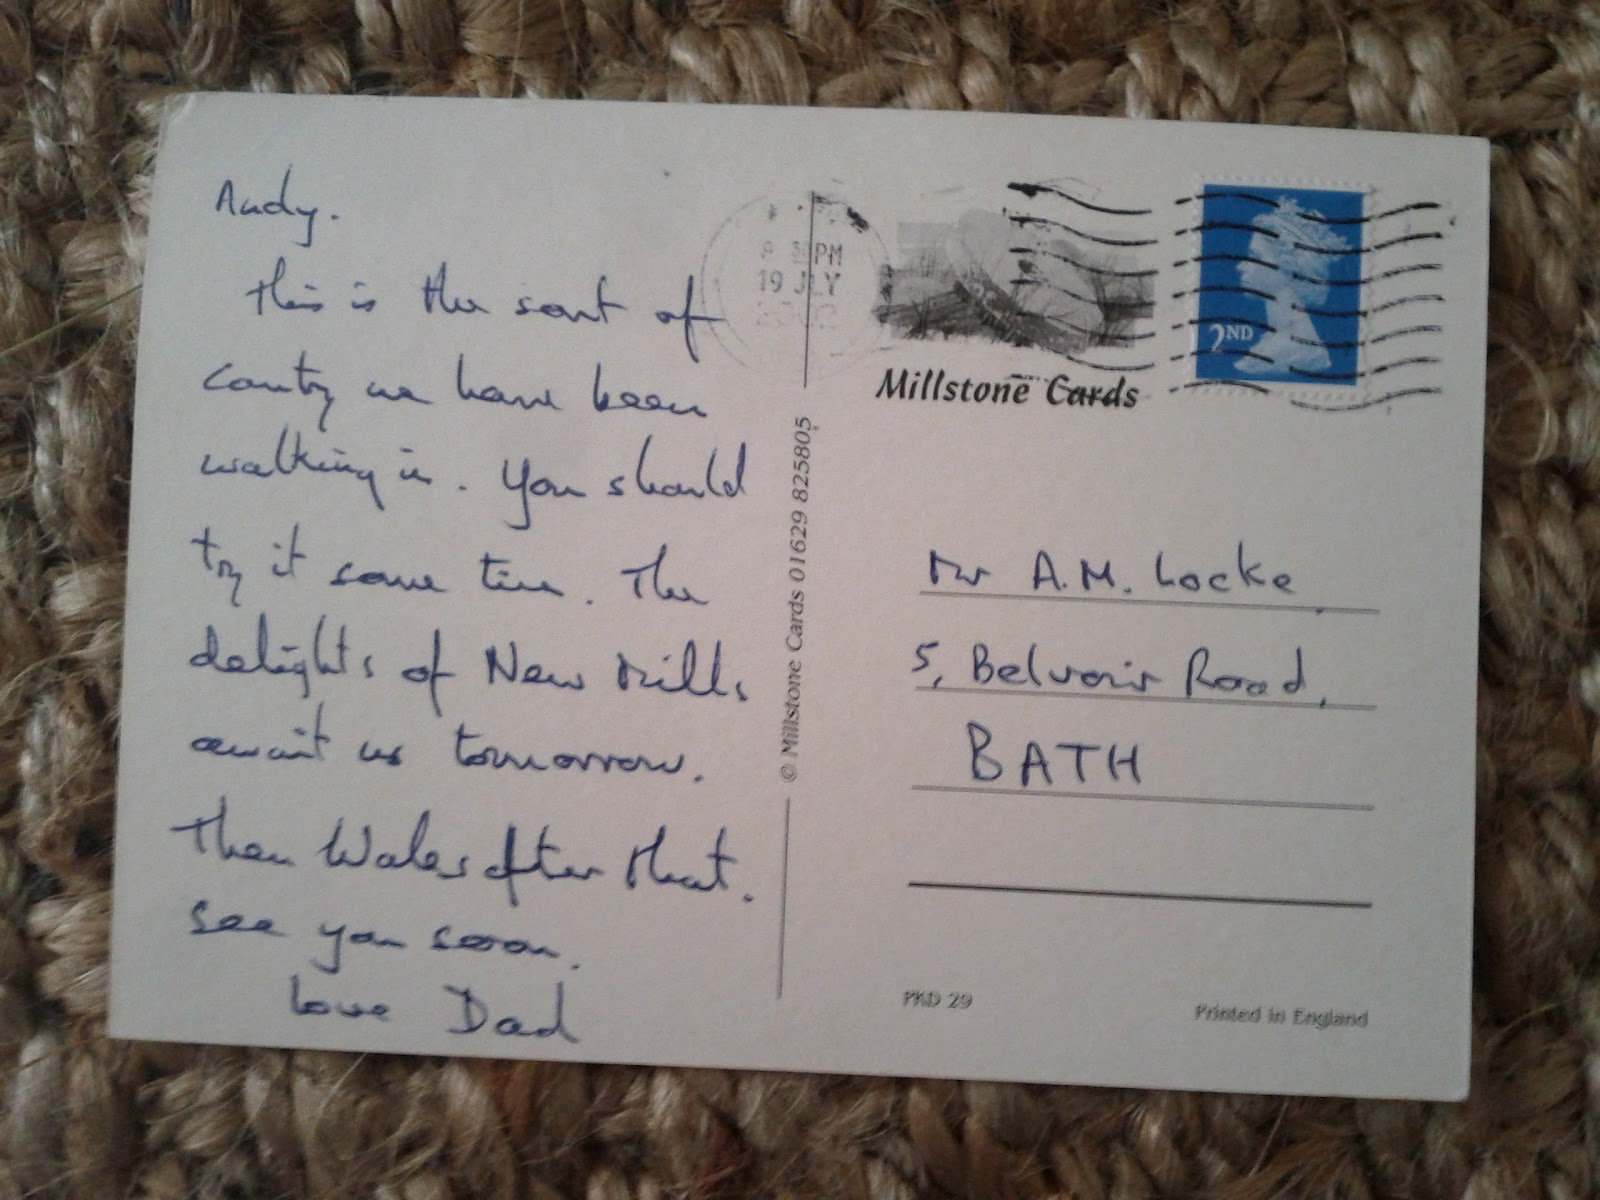 Andy.
This is the sort of
county we have been
walking in. You should
try it some time. The
delights of New Mills
await us tomorrow.
Then Wales after that.
See you soon.
Love Dad
PM
19 JLY
Millstone Cards
2ND
© Millstone Cards 01629 825805
Mr A.M. Locke
5, Belvoir Road,
BATH
PKD 29
Printed in England